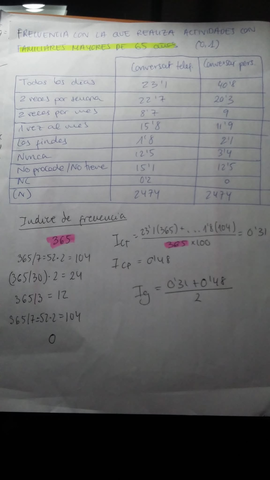 FRECUENCIA CON LA QUE REALIZA ACTIVIDADES CON
FAMILIARES MAYORES DE 65 AÑOS (0.8)
Conversar telef. Conversar pers.
Todos los días 23'1 40'8
2 veces por semana 22'7 20'3
2 veces por mes 8'7 9
1 vez al mes 15'8 11'9
Los findes 1'8 2'1
Nunca 12'5 3'4
No procede/No tiene 15'1 12'5
NC 0'2 0
(N) 2474 2474
Indice de frecuencia
365
365/7=52·2=104
(365/30)·2=24
365/3=12
365/7=52·2=104
0
Ict = 23'1(365)+...1'8(104) / 365 x100 = 0'31
Icp = 0'48
Ig = 0'31+0'48 / 2